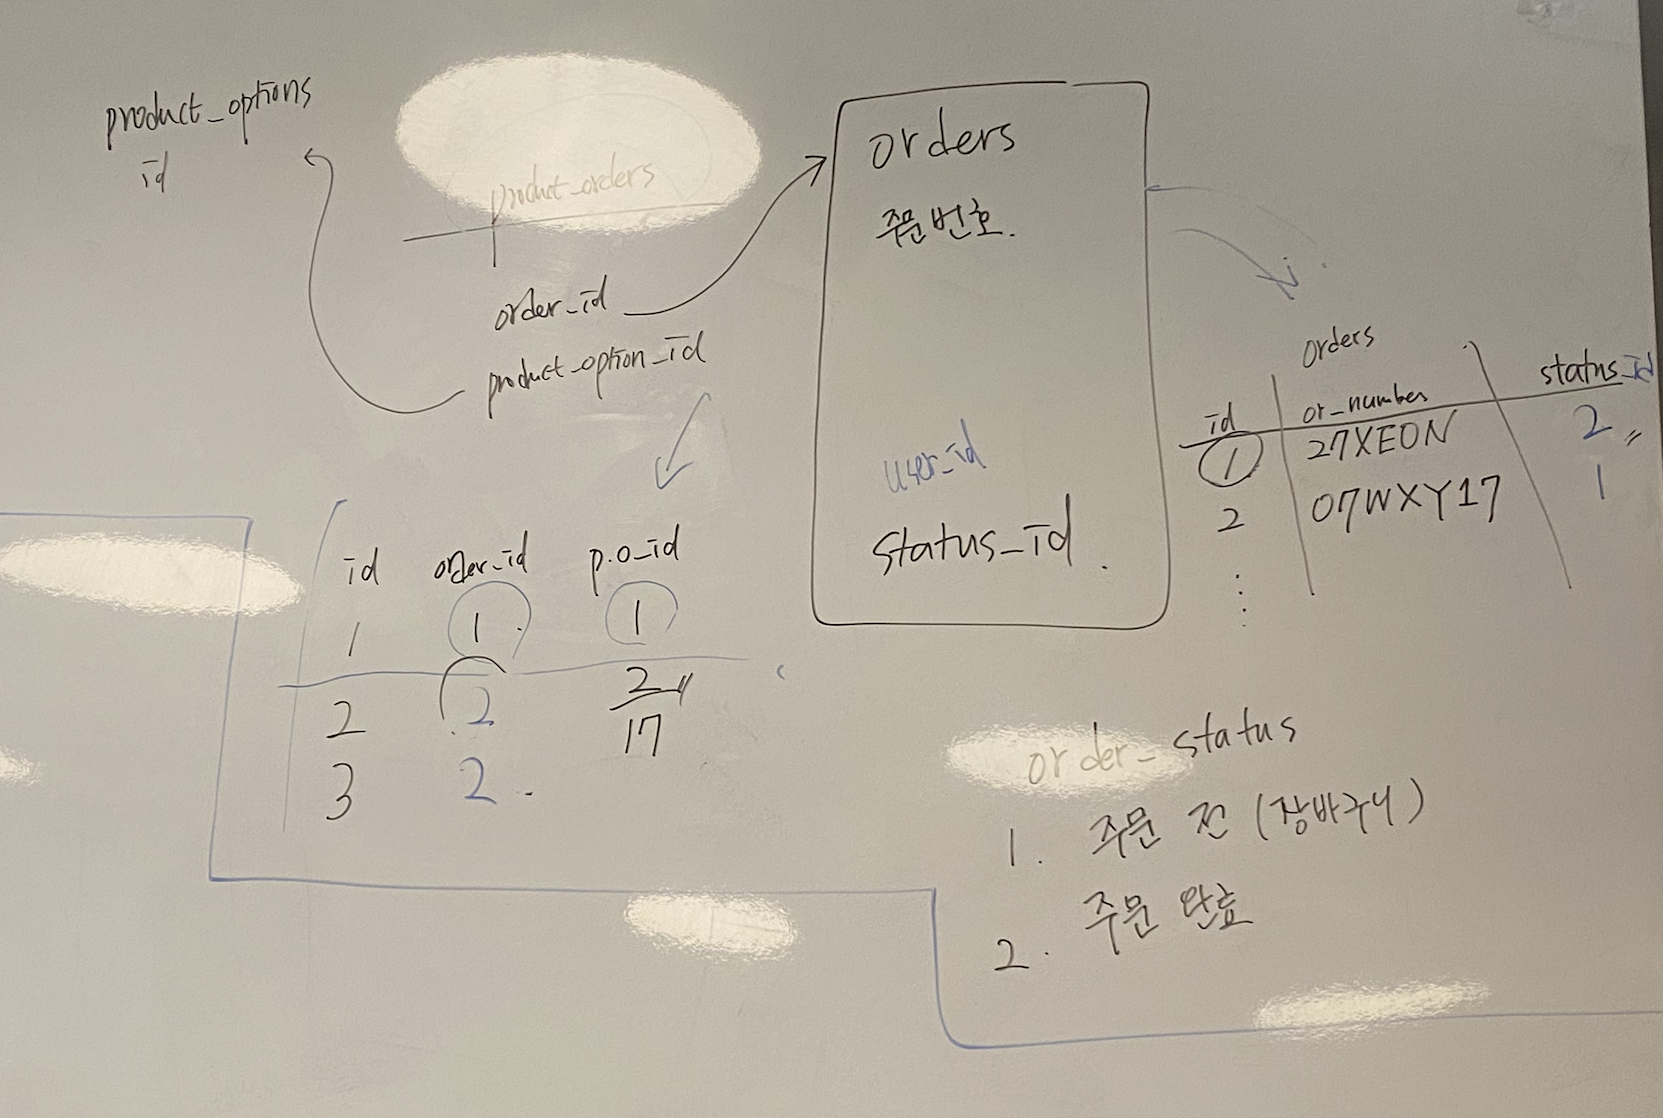 product_options
id
product_orders
order_id
product_option_id
orders
주문번호.
user_id
status_id.
orders
id or_number status_id
1 27XEON 2
2 07WXY17 1
id order_id p.o_id
1 1 1
2 2 2
3 2 17
order_status
1. 주문 전 (장바구니)
2. 주문 완료